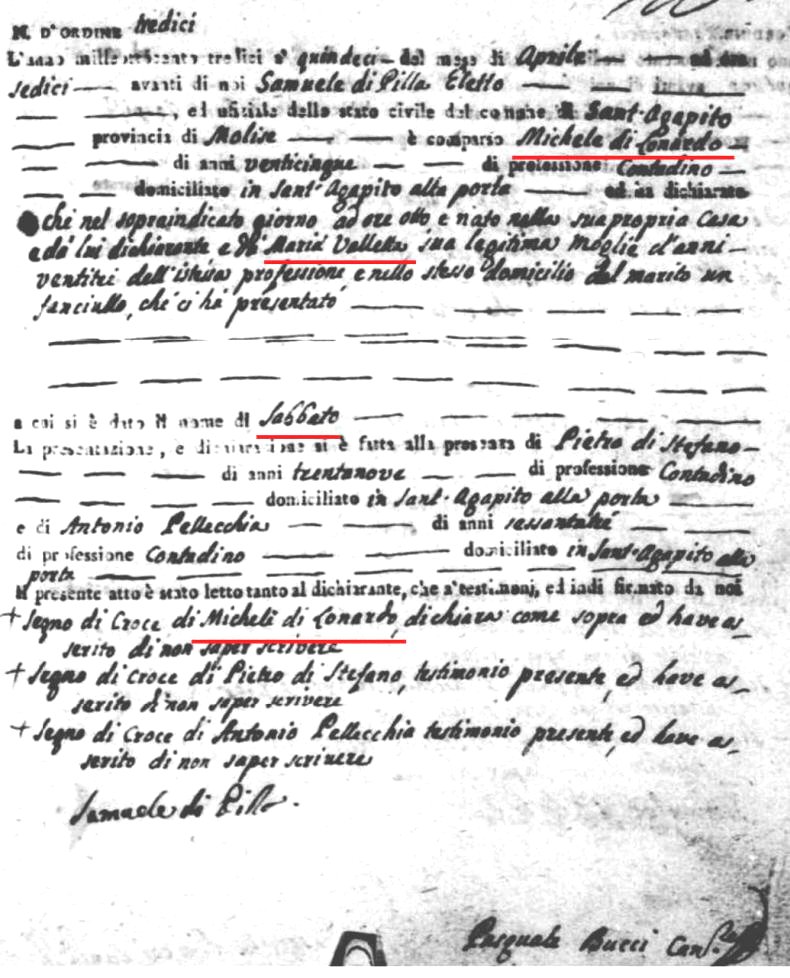 N. D'ORDINE tredici
L'anno milleottocento tredici a' quindeci del mese di Aprile ad ore
sedici avanti di noi Samuele di Pilla Eletto
ed ufiziale dello stato civile del comune di Sant'Agapito
provincia di Molise è comparso Michele di Lonardo
di anni venticinque di professione Contadino
domiciliato in Sant'Agapito alla porta ed ha dichiarato
che nel sopraindicato giorno ad ore otto e nato nella sua propria Casa
e da lui dichiarante e di Maria Valletta sua legitima Moglie d'anni
ventitrè dell'istessa professione e nello stesso domicilio del marito un
fanciullo, che ci ha presentato
a cui si è dato il nome di Sabbato
La presentazione, e dichiarazione si è fatta alla presenza di Pietro di Stefano
di anni trentanove di professione Contadino
domiciliato in Sant'Agapito alla porta
e di Antonio Pellecchia di anni sessantatré
di professione Contadino domiciliato in Sant'Agapito alla
porta
Il presente atto è stato letto tanto al dichiarante, che a' testimonj, ed indi firmato da noi
+ Segno di Croce di Micheli di Lonardo, dichiara come sopra ed have as_
serito di non saper scrivere
+ Segno di croce di Pietro di Stefano, testimonio presente, ed have as_
serito di non saper scrivere
+ Segno di Croce di Antonio Pellecchia testimonio presente, ed have as_
serito di non saper scrivere
Samuele di Pilla.
Pasquale Bucci Can.